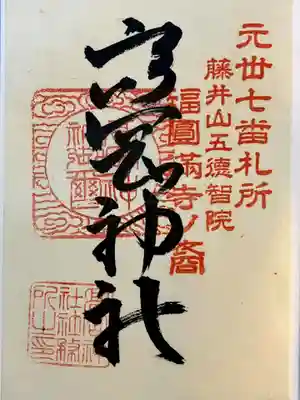 元丗七番札所
藤井山五德智院
福圓滿寺ノ裔
高岡神社